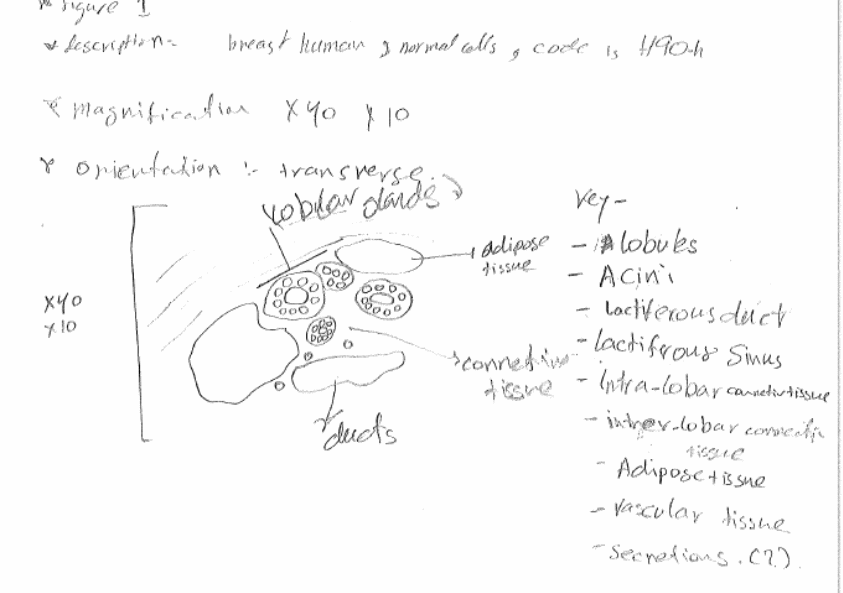 * Figure 1
* description - breast human, normal cells, code is H90-h
* magnification X40 X10
* orientation :- transverse.
Lobular glands
Key -
adipose
tissue
- lobules
- Acini
X40
X10
- Lactiferous duct
- lactifrous sinus
connective
tissue
- Intra-lobar connective tissue
- inther-lobar connectiv
tissue
ducts
- Adipose tissue
- vascular tissue
- secretions. (?)